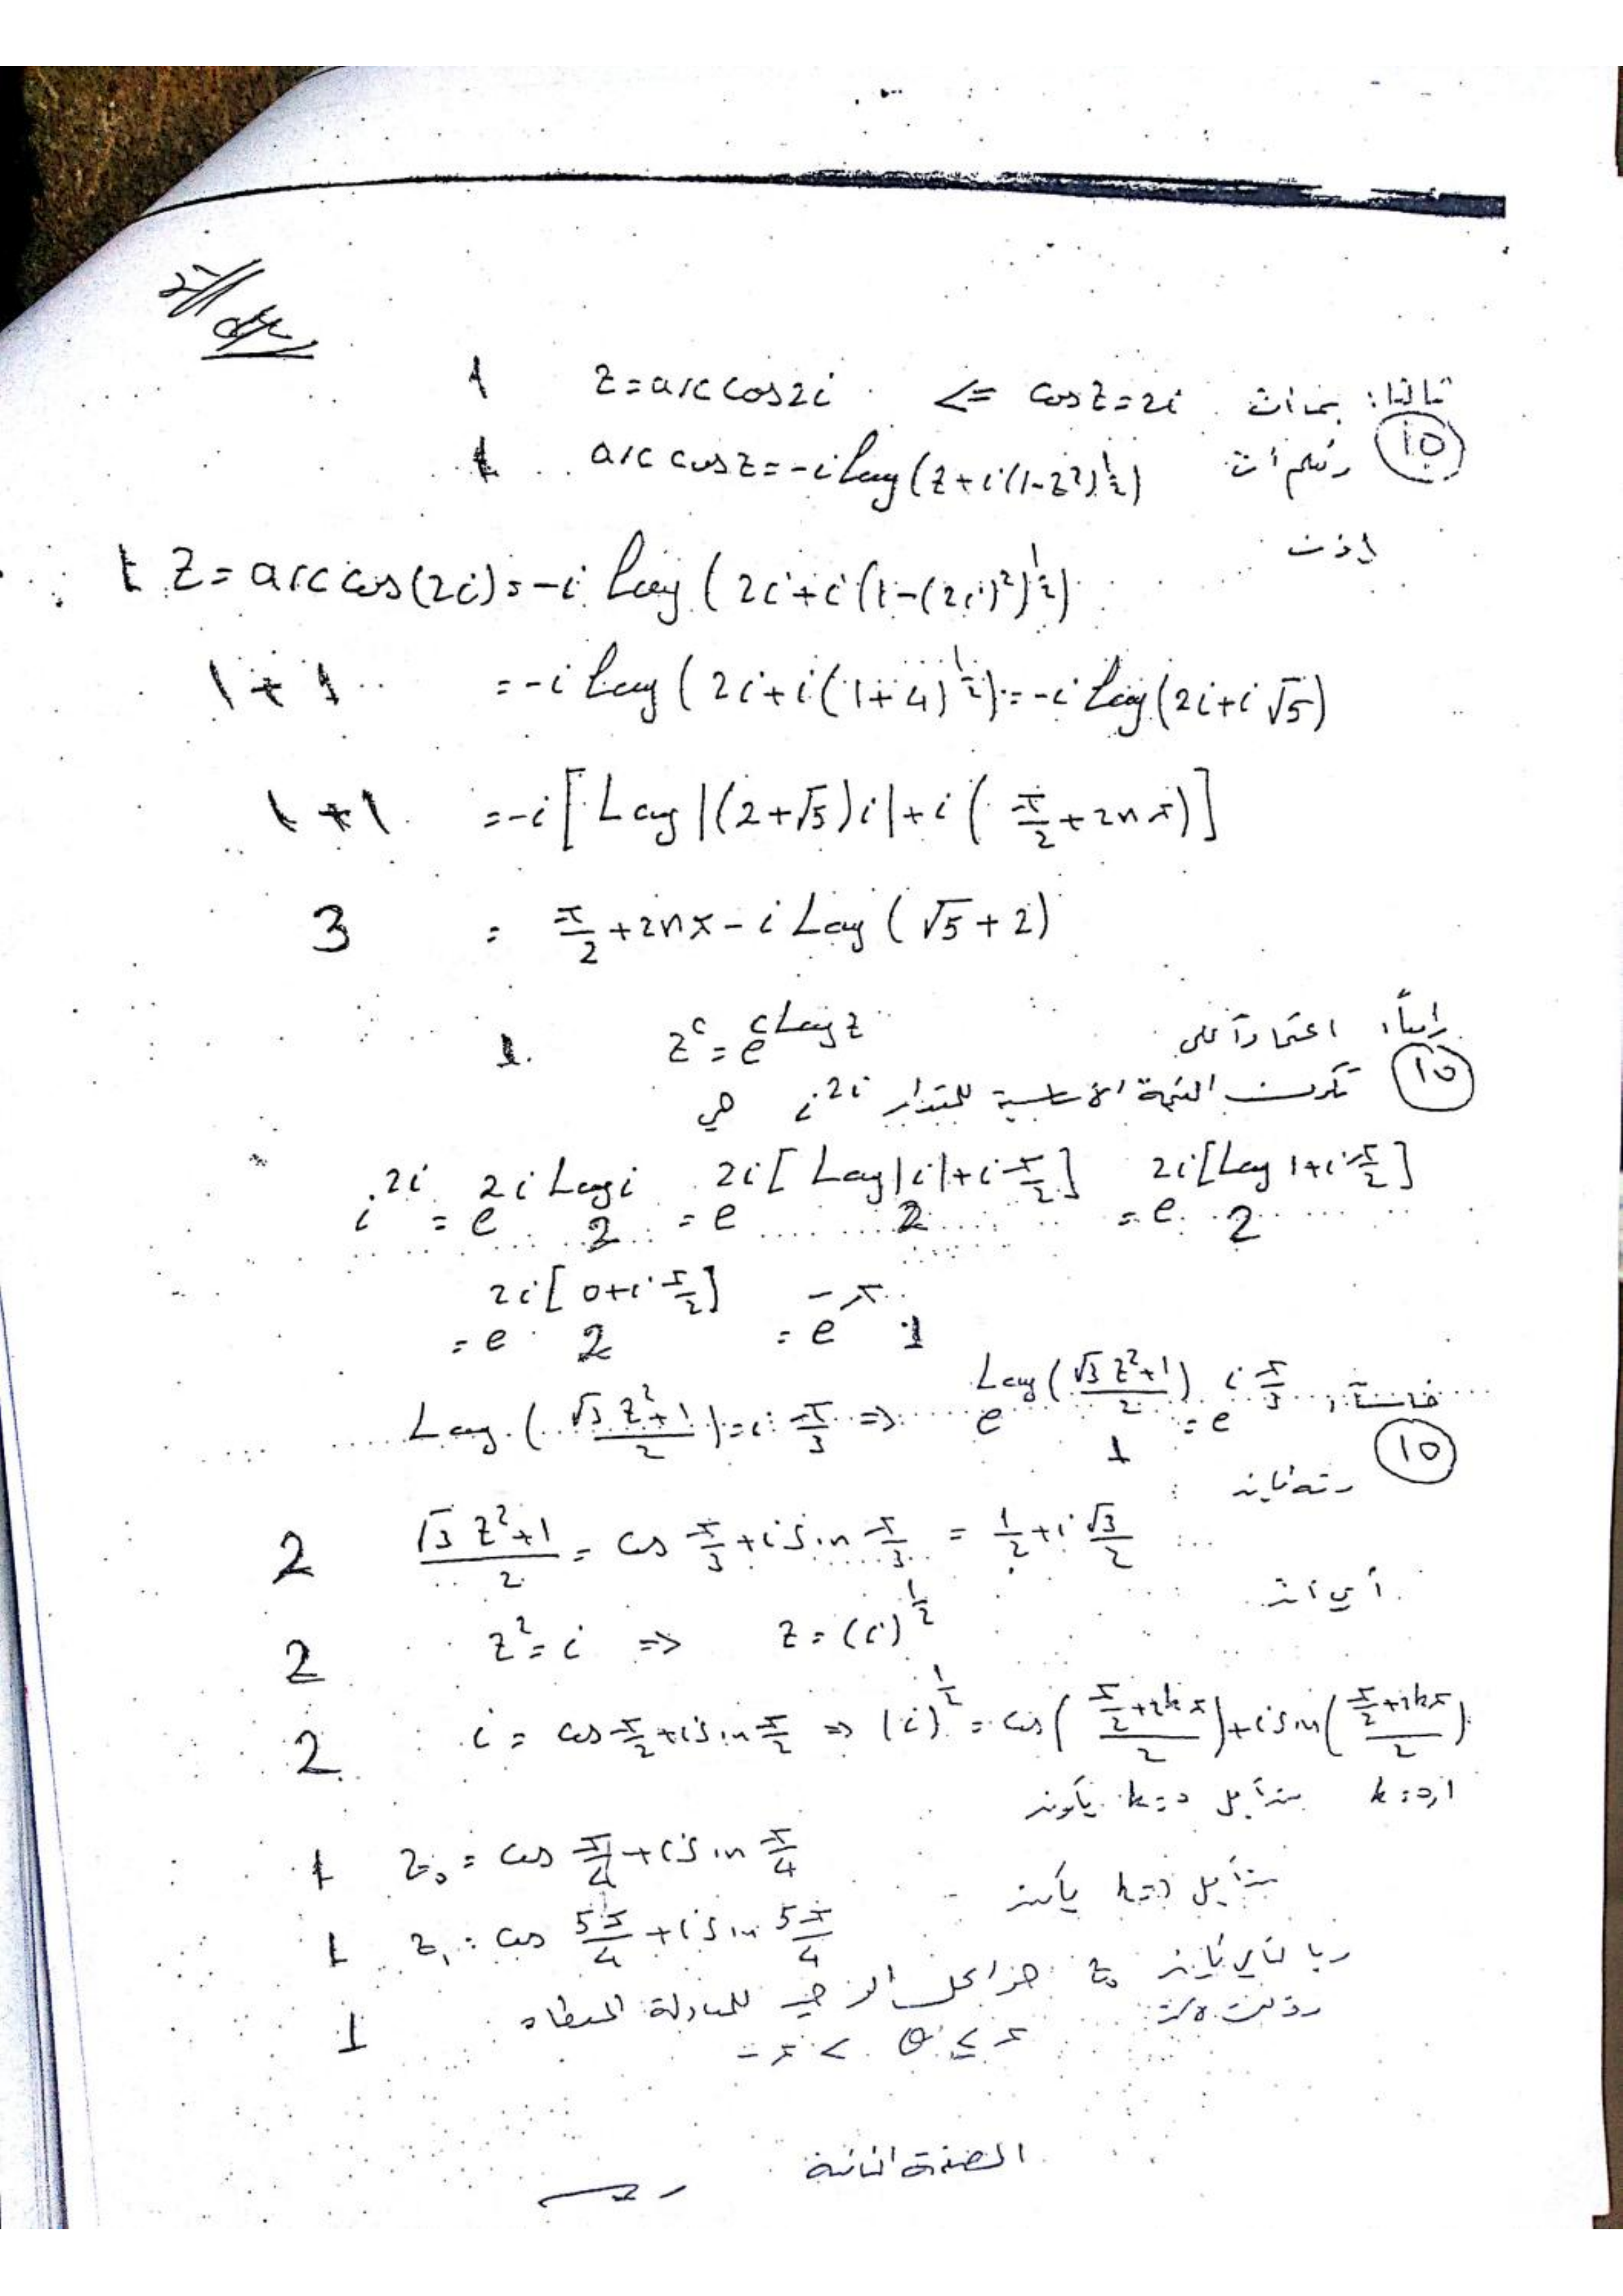 ثالثا: بما أن cos z = 2i => z = arc cos 2i 1
(10) ونعلم أن arc cos z = -i Log (z + i(1-z²)^½) 1
إذن
1 z = arc cos(2i) = -i Log (2i + i(1-(2i)²)^½)
= -i Log (2i + i(1+4)^½) = -i Log (2i + i√5) 1+1
= -i [Log |(2+√5)i| + i(π/2 + 2nπ)] 1+1
= π/2 + 2nπ - i Log (√5 + 2) 3
رابعاً: اعتماداً على z^c = e^(c Log z) 1
(10) تكون القيمة الأساسية للمقدار i^2i هي
i^2i = e^(2i Log i) 2 = e^(2i[Log|i| + i π/2]) 2 = e^(2i[Log 1 + i π/2]) 2
= e^(2i[0 + i π/2]) 2 = e^-π 1
خامساً: Log ((√3 z² + 1)/2) = i π/3 => e^(Log((√3 z² + 1)/2)) = e^(i π/3) 1
(10) ومنه فإن :
(√3 z² + 1)/2 = cos π/3 + i sin π/3 = 1/2 + i √3/2 2
أي أن
z² = i => z = (i)^½ 2
i = cos π/2 + i sin π/2 => (i)^½ = cos((π/2 + 2kπ)/2) + i sin((π/2 + 2kπ)/2) 2
k = 0,1 من أجل k = 0 يكون
z₀ = cos π/4 + i sin π/4 1
من أجل k = 1 يكون
z₁ = cos 5π/4 + i sin 5π/4 1
وبالتالي فإن z₀ هو الحل الوحيد للمعادلة المعطاة 1
وذلك لأن -π < θ ≤ π
الصفحة الثانية